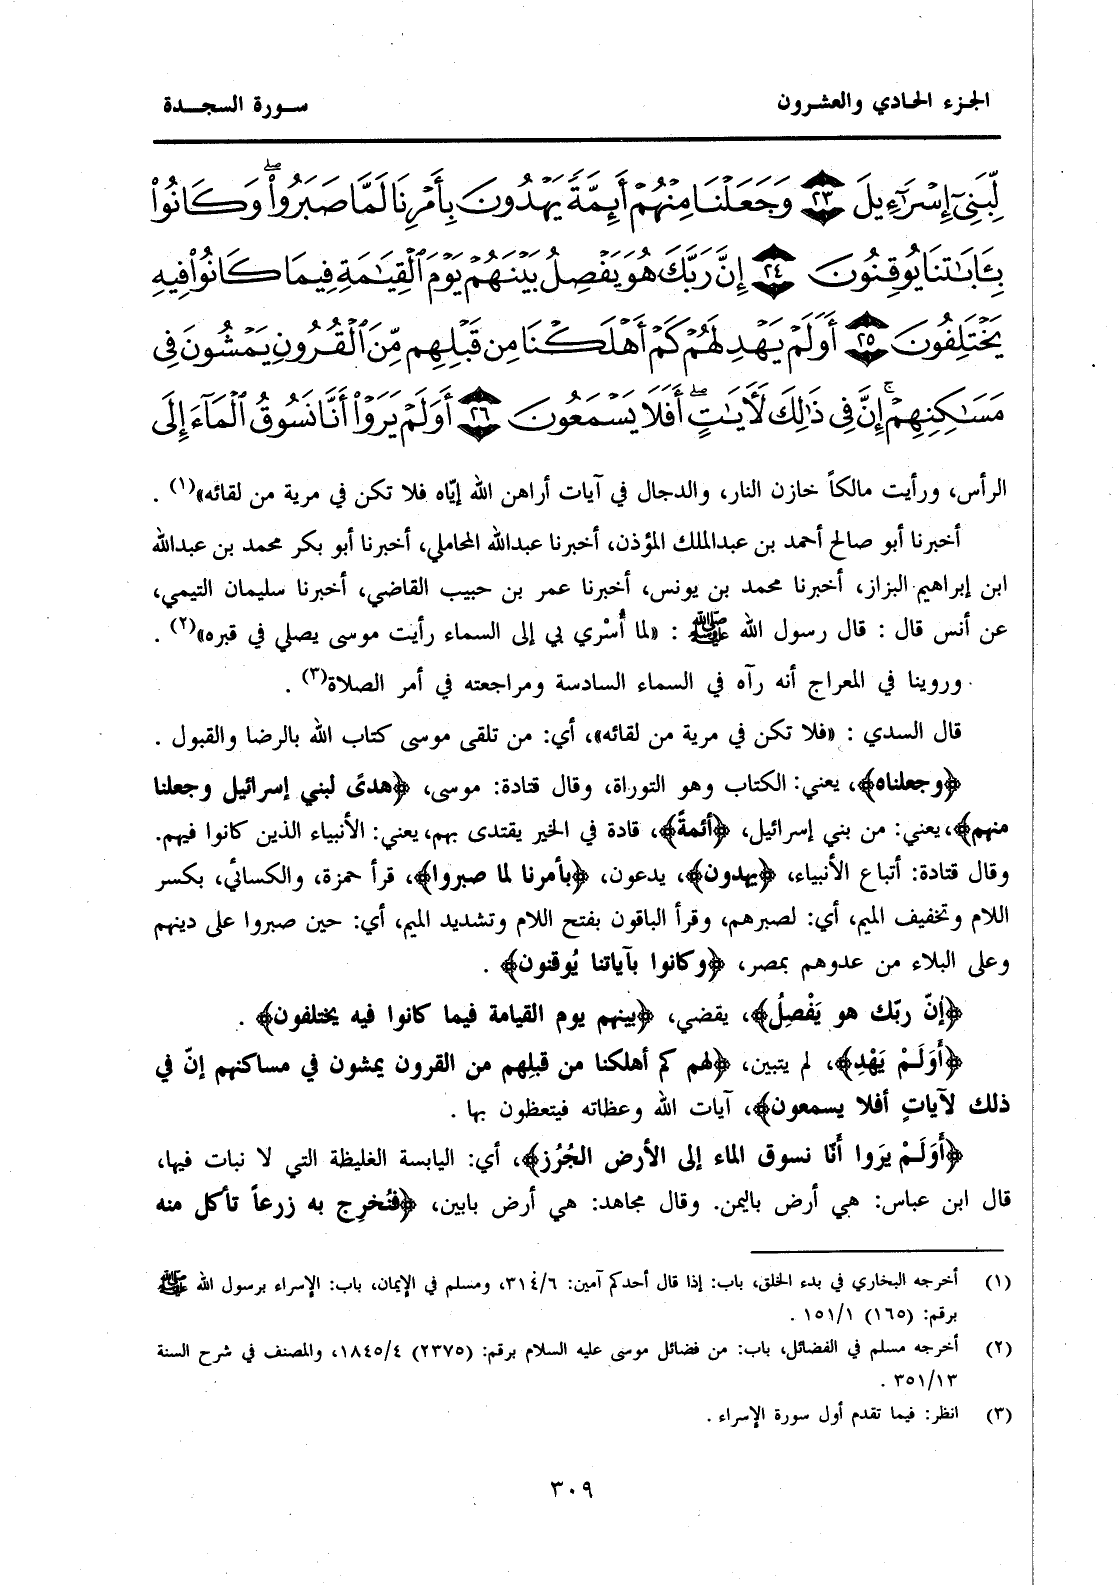 الجزء الحادي والعشرون
سورة السجدة
لِّبَنِىٓ إِسْرَٰٓءِيلَ ٢٣ وَجَعَلْنَا مِنْهُمْ أَئِمَّةً يَهْدُونَ بِأَمْرِنَا لَمَّا صَبَرُوا۟ ۖ وَكَانُوا۟
بِـَٔايَـٰتِنَا يُوقِنُونَ ٢٤ إِنَّ رَبَّكَ هُوَ يَفْصِلُ بَيْنَهُمْ يَوْمَ ٱلْقِيَـٰمَةِ فِيمَا كَانُوا۟ فِيهِ
يَخْتَلِفُونَ ٢٥ أَوَلَمْ يَهْدِ لَهُمْ كَمْ أَهْلَكْنَا مِن قَبْلِهِم مِّنَ ٱلْقُرُونِ يَمْشُونَ فِى
مَسَـٰكِنِهِمْ ۚ إِنَّ فِى ذَٰلِكَ لَـَٔايَـٰتٍ ۖ أَفَلَا يَسْمَعُونَ ٢٦ أَوَلَمْ يَرَوْا۟ أَنَّا نَسُوقُ ٱلْمَآءَ إِلَى
الرأس، ورأيت مالكاً خازن النار، والدجال في آيات أراهن الله إيّاه فلا تكن في مرية من لقائه»(١) .
أخبرنا أبو صالح أحمد بن عبدالملك المؤذن، أخبرنا عبدالله المحاملي، أخبرنا أبو بكر محمد بن عبدالله
ابن إبراهيم البزاز، أخبرنا محمد بن يونس، أخبرنا عمر بن حبيب القاضي، أخبرنا سليمان التيمي،
عن أنس قال : قال رسول الله ﷺ : «لما أُسْري بي إلى السماء رأيت موسى يصلي في قبره»(٢) .
وروينا في المعراج أنه رآه في السماء السادسة ومراجعته في أمر الصلاة(٣) .
قال السدي : «فلا تكن في مرية من لقائه»، أي: من تلقى موسى كتاب الله بالرضا والقبول .
﴿وجعلناه﴾، يعني: الكتاب وهو التوراة، وقال قتادة: موسى، ﴿هدىً لبني إسرائيل وجعلنا
منهم﴾، يعني: من بني إسرائيل، ﴿أئمةً﴾، قادة في الخير يقتدى بهم، يعني: الأنبياء الذين كانوا فيهم.
وقال قتادة: أتباع الأنبياء، ﴿يهدون﴾، يدعون، ﴿بأمرنا لما صبروا﴾، قرأ حمزة، والكسائي، بكسر
اللام وتخفيف الميم، أي: لصبرهم، وقرأ الباقون بفتح اللام وتشديد الميم، أي: حين صبروا على دينهم
وعلى البلاء من عدوهم بمصر، ﴿وكانوا بآياتنا يُوقنون﴾ .
﴿إنّ ربّك هو يَفْصِلُ﴾، يقضي، ﴿بينهم يوم القيامة فيما كانوا فيه يختلفون﴾ .
﴿أَوَلَمْ يَهْدِ﴾، لم يتبين، ﴿لهم كم أهلكنا من قبلِهم من القرون يمشون في مساكنهم إنّ في
ذلك لآياتٍ أفلا يسمعون﴾، آيات الله وعظاته فيتعظون بها .
﴿أَوَلَمْ يرَوا أنّا نسوق الماء إلى الأرض الجُرُز﴾، أي: اليابسة الغليظة التي لا نبات فيها،
قال ابن عباس: هي أرض باليمن. وقال مجاهد: هي أرض بابين، ﴿فنُخرِج به زرعاً تأكل منه
(١) أخرجه البخاري في بدء الخلق، باب: إذا قال أحدكم آمين: ٣١٤/٦، ومسلم في الإيمان، باب: الإسراء برسول الله ﷺ
برقم: (١٦٥) ١٥١/١ .
(٢) أخرجه مسلم في الفضائل، باب: من فضائل موسى عليه السلام برقم: (٢٣٧٥) ١٨٤٥/٤، والمصنف في شرح السنة
٣٥١/١٣ .
(٣) انظر: فيما تقدم أول سورة الإسراء .
٣٠٩